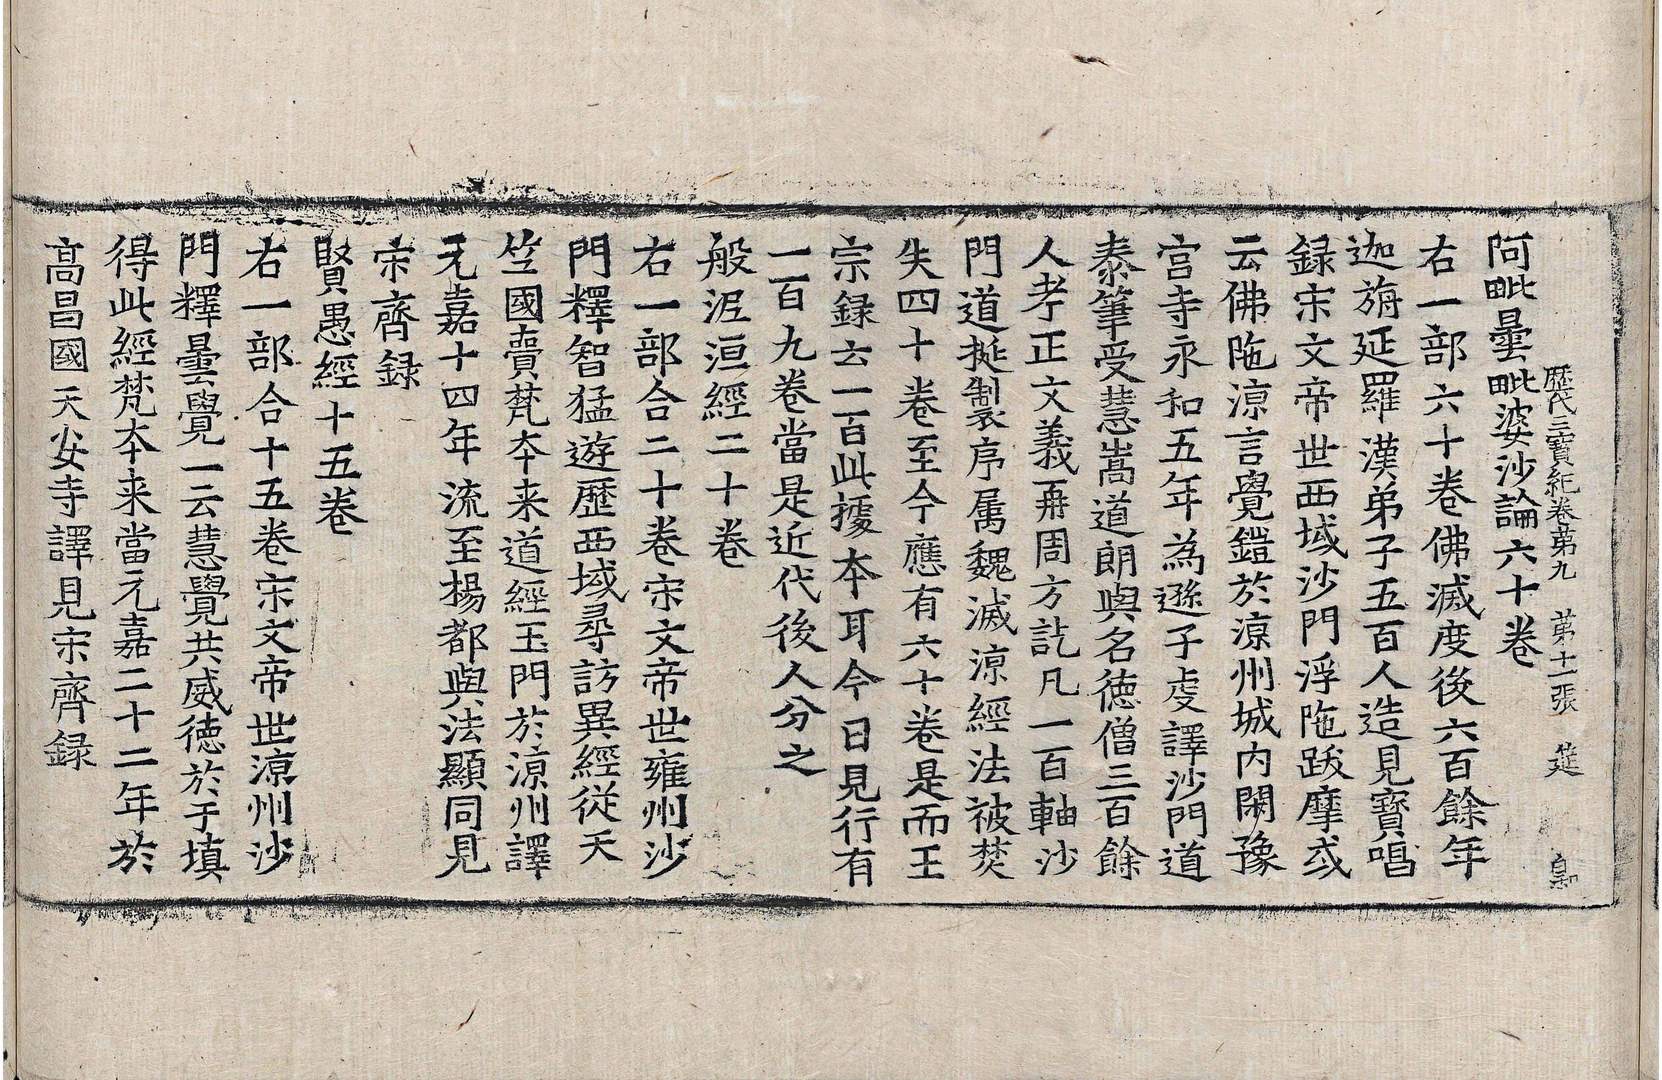 歷代三寶紀卷苐九 苐十一張 㢟
阿毗曇毗婆沙論六十卷
右一部六十卷佛滅度後六百餘年
迦旃延羅漢弟子五百人造見寶唱
録宋文帝世西域沙門浮陁跋摩或
云佛陁涼言覺鎧於涼州城内閑豫
宫寺永和五年為遜子虔譯沙門道
泰筆受慧嵩道朗與名德僧三百餘
人孝正文義再周方訖凡一百軸沙
門道挻製序属魏滅涼經法被焚
失四十卷至今應有六十卷是而王
宗録云一百此據本耳今日見行有
一百九卷當是近代後人分之
般泥洹經二十卷
右一部合二十卷宋文帝世雍州沙
門釋智猛遊歷西域尋訪異經從天
竺國賷梵本来道經玉門於涼州譯
元嘉十四年流至楊都與法顯同見
宋齊録
賢愚經十五卷
右一部合十五卷宋文帝世涼州沙
門釋曇覺一云慧覺共威德於于填
得此經梵本来當元嘉二十二年於
高昌國天安寺譯見宋齊録